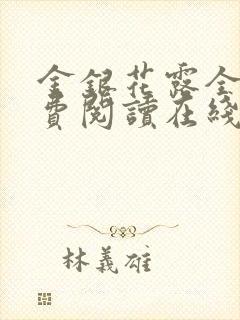 金銀花露全
費閱讀在綫
林義雄